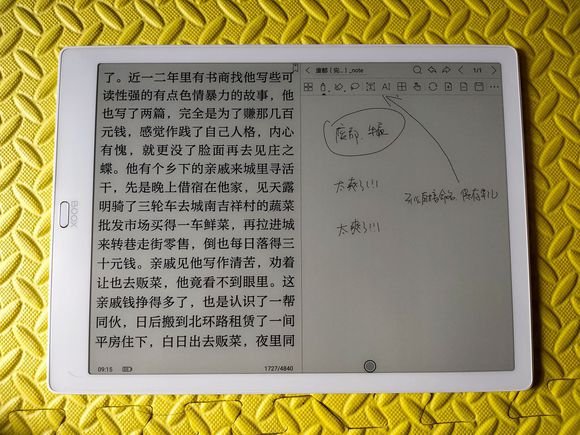 了。近一二年里有书商找他写些可
读性强的有点色情暴力的故事，他
也写了两篇，完全是为了赚那几百
元钱，感觉作践了自己人格，内心
有愧，就更没了脸面再去见庄之
蝶。他有个乡下的亲戚来城里寻活
干，先是晚上借宿在他家，见天露
明骑了三轮车去城南吉祥村的蔬菜
批发市场买得一车鲜菜，再拉进城
来转巷走街零售，倒也每日落得三
十元钱。亲戚见他写作清苦，劝着
让也去贩菜，他竟看不到眼里。这
亲戚钱挣得多了，也是认识了一帮
同伙，日后搬到北环路租赁了一间
平房住下，白日出去贩菜，夜里同
09:15
1727/4840
BOOX
废都 (完...)_note
1/1
废都
太爽了!!!
太爽了!!!